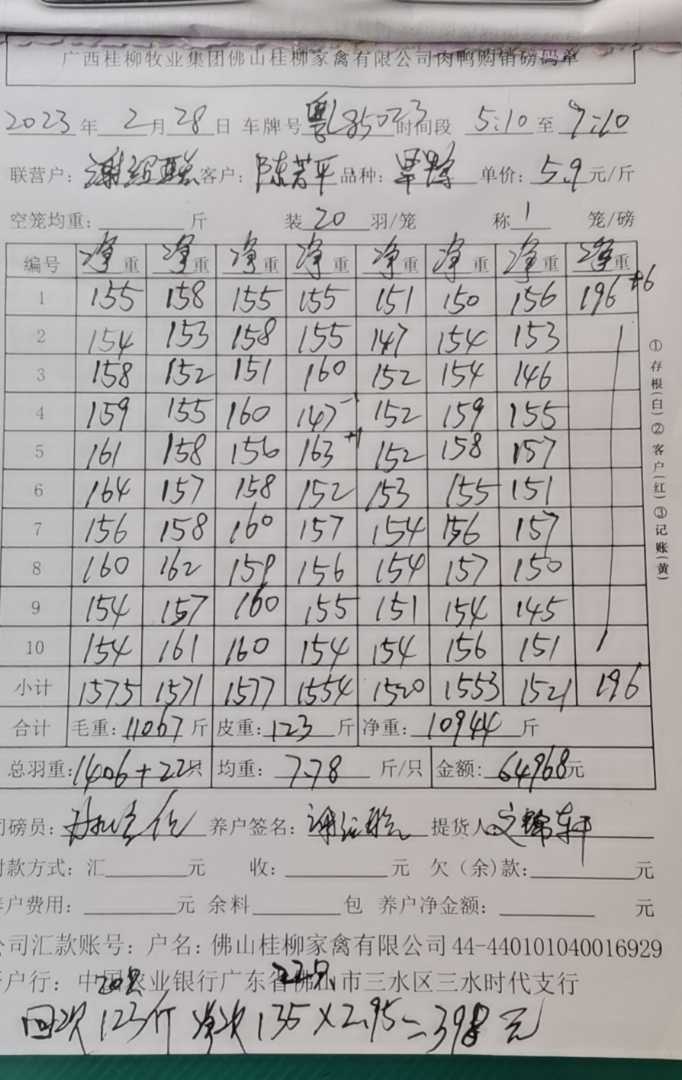 广西桂柳牧业集团佛山桂柳家禽有限公司肉鸭购销磅码单
2023 年 2 月 28 日 车牌号 时间段 5:10 至 7:10
联营户: 客户: 陈芳平 品种: 单价: 5.9 元/斤
空笼均重: 斤 装 20 羽/笼 称 1 笼/磅
编号 净重 净重 净重 净重 净重 净重 净重 净重
1 155 158 155 155 151 150 156 196 +6
2 154 153 158 155 147 154 153
3 158 152 151 160 152 154 146
4 159 155 160 147 -1 152 159 155
5 161 158 156 163 +1 152 158 157
6 164 157 158 152 153 155 151
7 156 158 160 157 154 156 157
8 160 162 159 156 154 157 150
9 154 157 160 155 151 154 145
10 154 161 160 154 154 156 151
小计 1575 1571 1577 1554 1520 1553 1521 196
合计 毛重: 11067 斤 皮重: 123 斤 净重: 10944 斤
总羽重: 1406+22只 均重: 7.78 斤/只 金额: 64968元
磅员: 养户签名: 提货人:
付款方式: 汇 元 收: 元 欠(余)款: 元
户费用: 元 余料 包 养户净金额: 元
公司汇款账号: 户名: 佛山桂柳家禽有限公司 44-440101040016929
户行: 中国农业银行广东省佛山市三水区三水时代支行
22只
次 123斤 次 135×2.95=398元
①存根(白)②客户(红)③记账(黄)